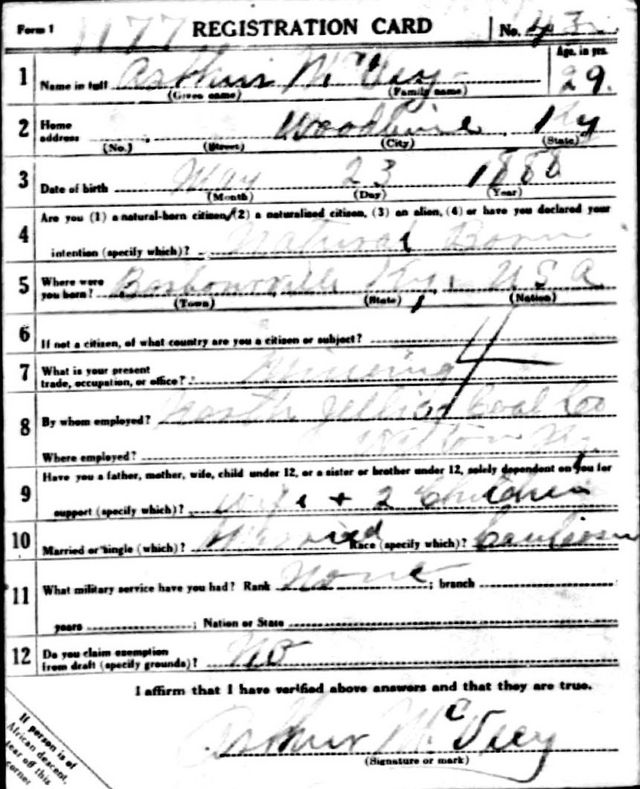 Form 1 1177 REGISTRATION CARD No. 43
Age, in yrs.
1 Name in full Arthur McVey 29.
(Given name) (Family name)
2 Home address Woodbine, Ky
(No.) (Street) (City) (State)
3 Date of birth May 23 1888
(Month) (Day) (Year)
4 Are you (1) a natural-born citizen, (2) a naturalized citizen, (3) an alien, (4) or have you declared your
intention (specify which)? Natural Born
5 Where were you born? Barbourville Ky, USA
(Town) (State) (Nation)
6 If not a citizen, of what country are you a citizen or subject?
7 What is your present trade, occupation, or office? Mining 4
8 By whom employed? North Jellico Coal Co
Where employed? Wilton Ky
9 Have you a father, mother, wife, child under 12, or a sister or brother under 12, solely dependent on you for
support (specify which)? wife + 2 Children
10 Married or single (which)? Married Race (specify which)? Caucasian
11 What military service have you had? Rank None ; branch
years ; Nation or State
12 Do you claim exemption from draft (specify grounds)? No
I affirm that I have verified above answers and that they are true.
Arthur McVey
(Signature or mark)
If person is of
African descent,
tear off this
corner